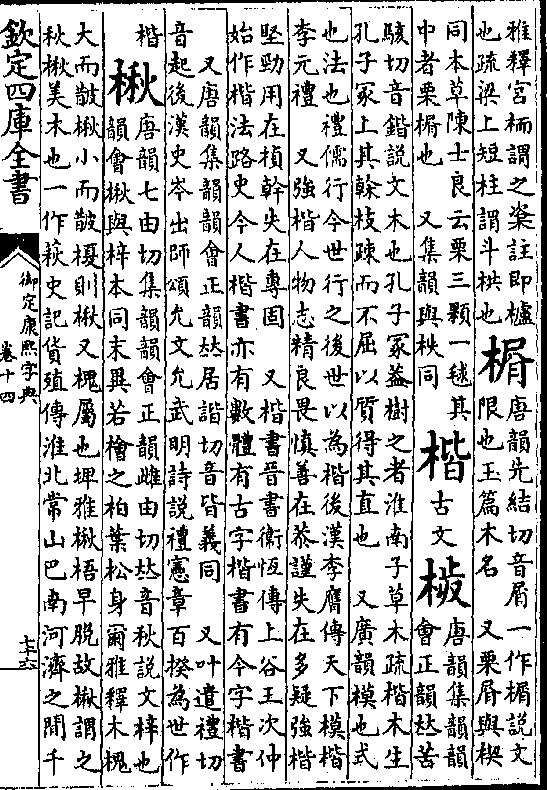 雅釋宮楶謂之㮞註即櫨
也疏梁上短柱謂斗栱也
楣
唐韻先結切音屑一作楣說文
限也玉篇木名 又粟屑與楔
同本草陳士良云栗三顆一毬其
中者栗楣也 又集韻與柣同
楷
古文
㭠
唐韻集韻韻
會正韻𠀤苦
駭切音鍇說文木也孔子冡蓋樹之者淮南子草木疏楷木生
孔子冡上其榦枝疎而不屈以質得其直也 又廣韻模也式
也法也禮儒行今世行之後世以為楷後漢李膺傳天下模楷
李元禮 又強楷人物志精良畏慎善在恭謹失在多疑強楷
堅勁用在楨幹失在專固 又楷書晉書衛恆傳上谷王次仲
始作楷法路史今人楷書亦有數體有古字楷書有今字楷書
又唐韻集韻韻會正韻𠀤居諧切音皆義同 又叶遣禮切
音起後漢史岑出師頌允文允武明詩説禮憲章百揆為世作
楷
楸
唐韻七由切集韻韻會正韻雌由切𠀤音秋説文梓也
韻會楸與梓本同末異若檜之柏葉松身爾雅釋木槐
大而皵楸小而皵榎則楸又槐屬也埤雅楸梧早脫故楸謂之
秋楸美木也一作萩史記貨殖傳淮北常山巴南河濟之間千
欽定四庫全書
御定康熙字典
卷十四
七十六